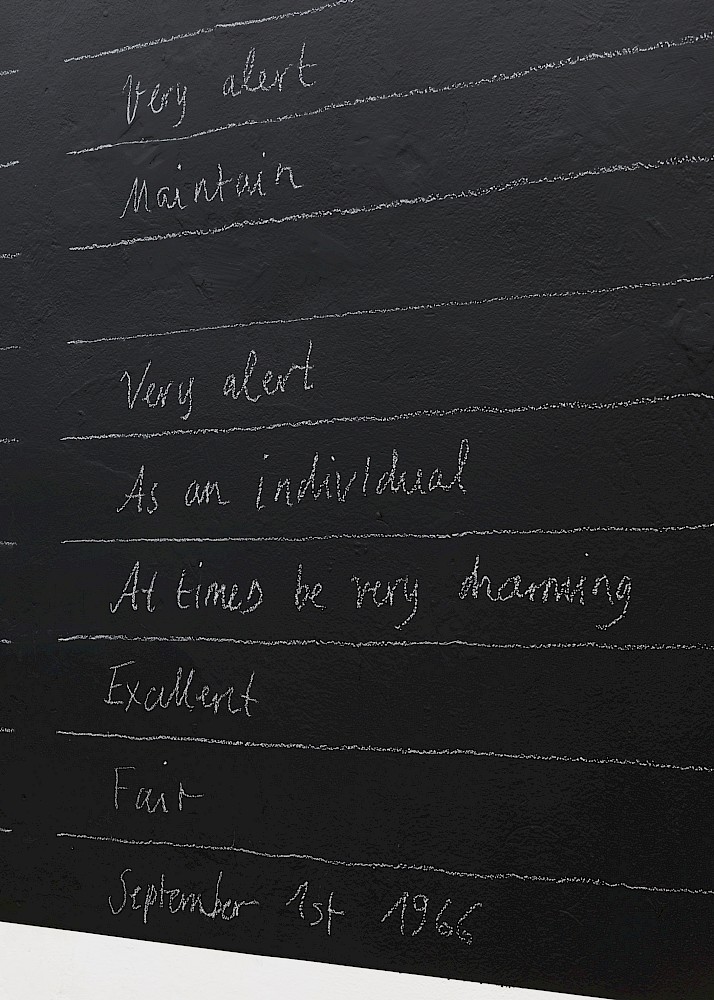 Very alert
Maintain
Very alert
As an individual
At times be very charming
Excellent
Fair
September 1st 1966